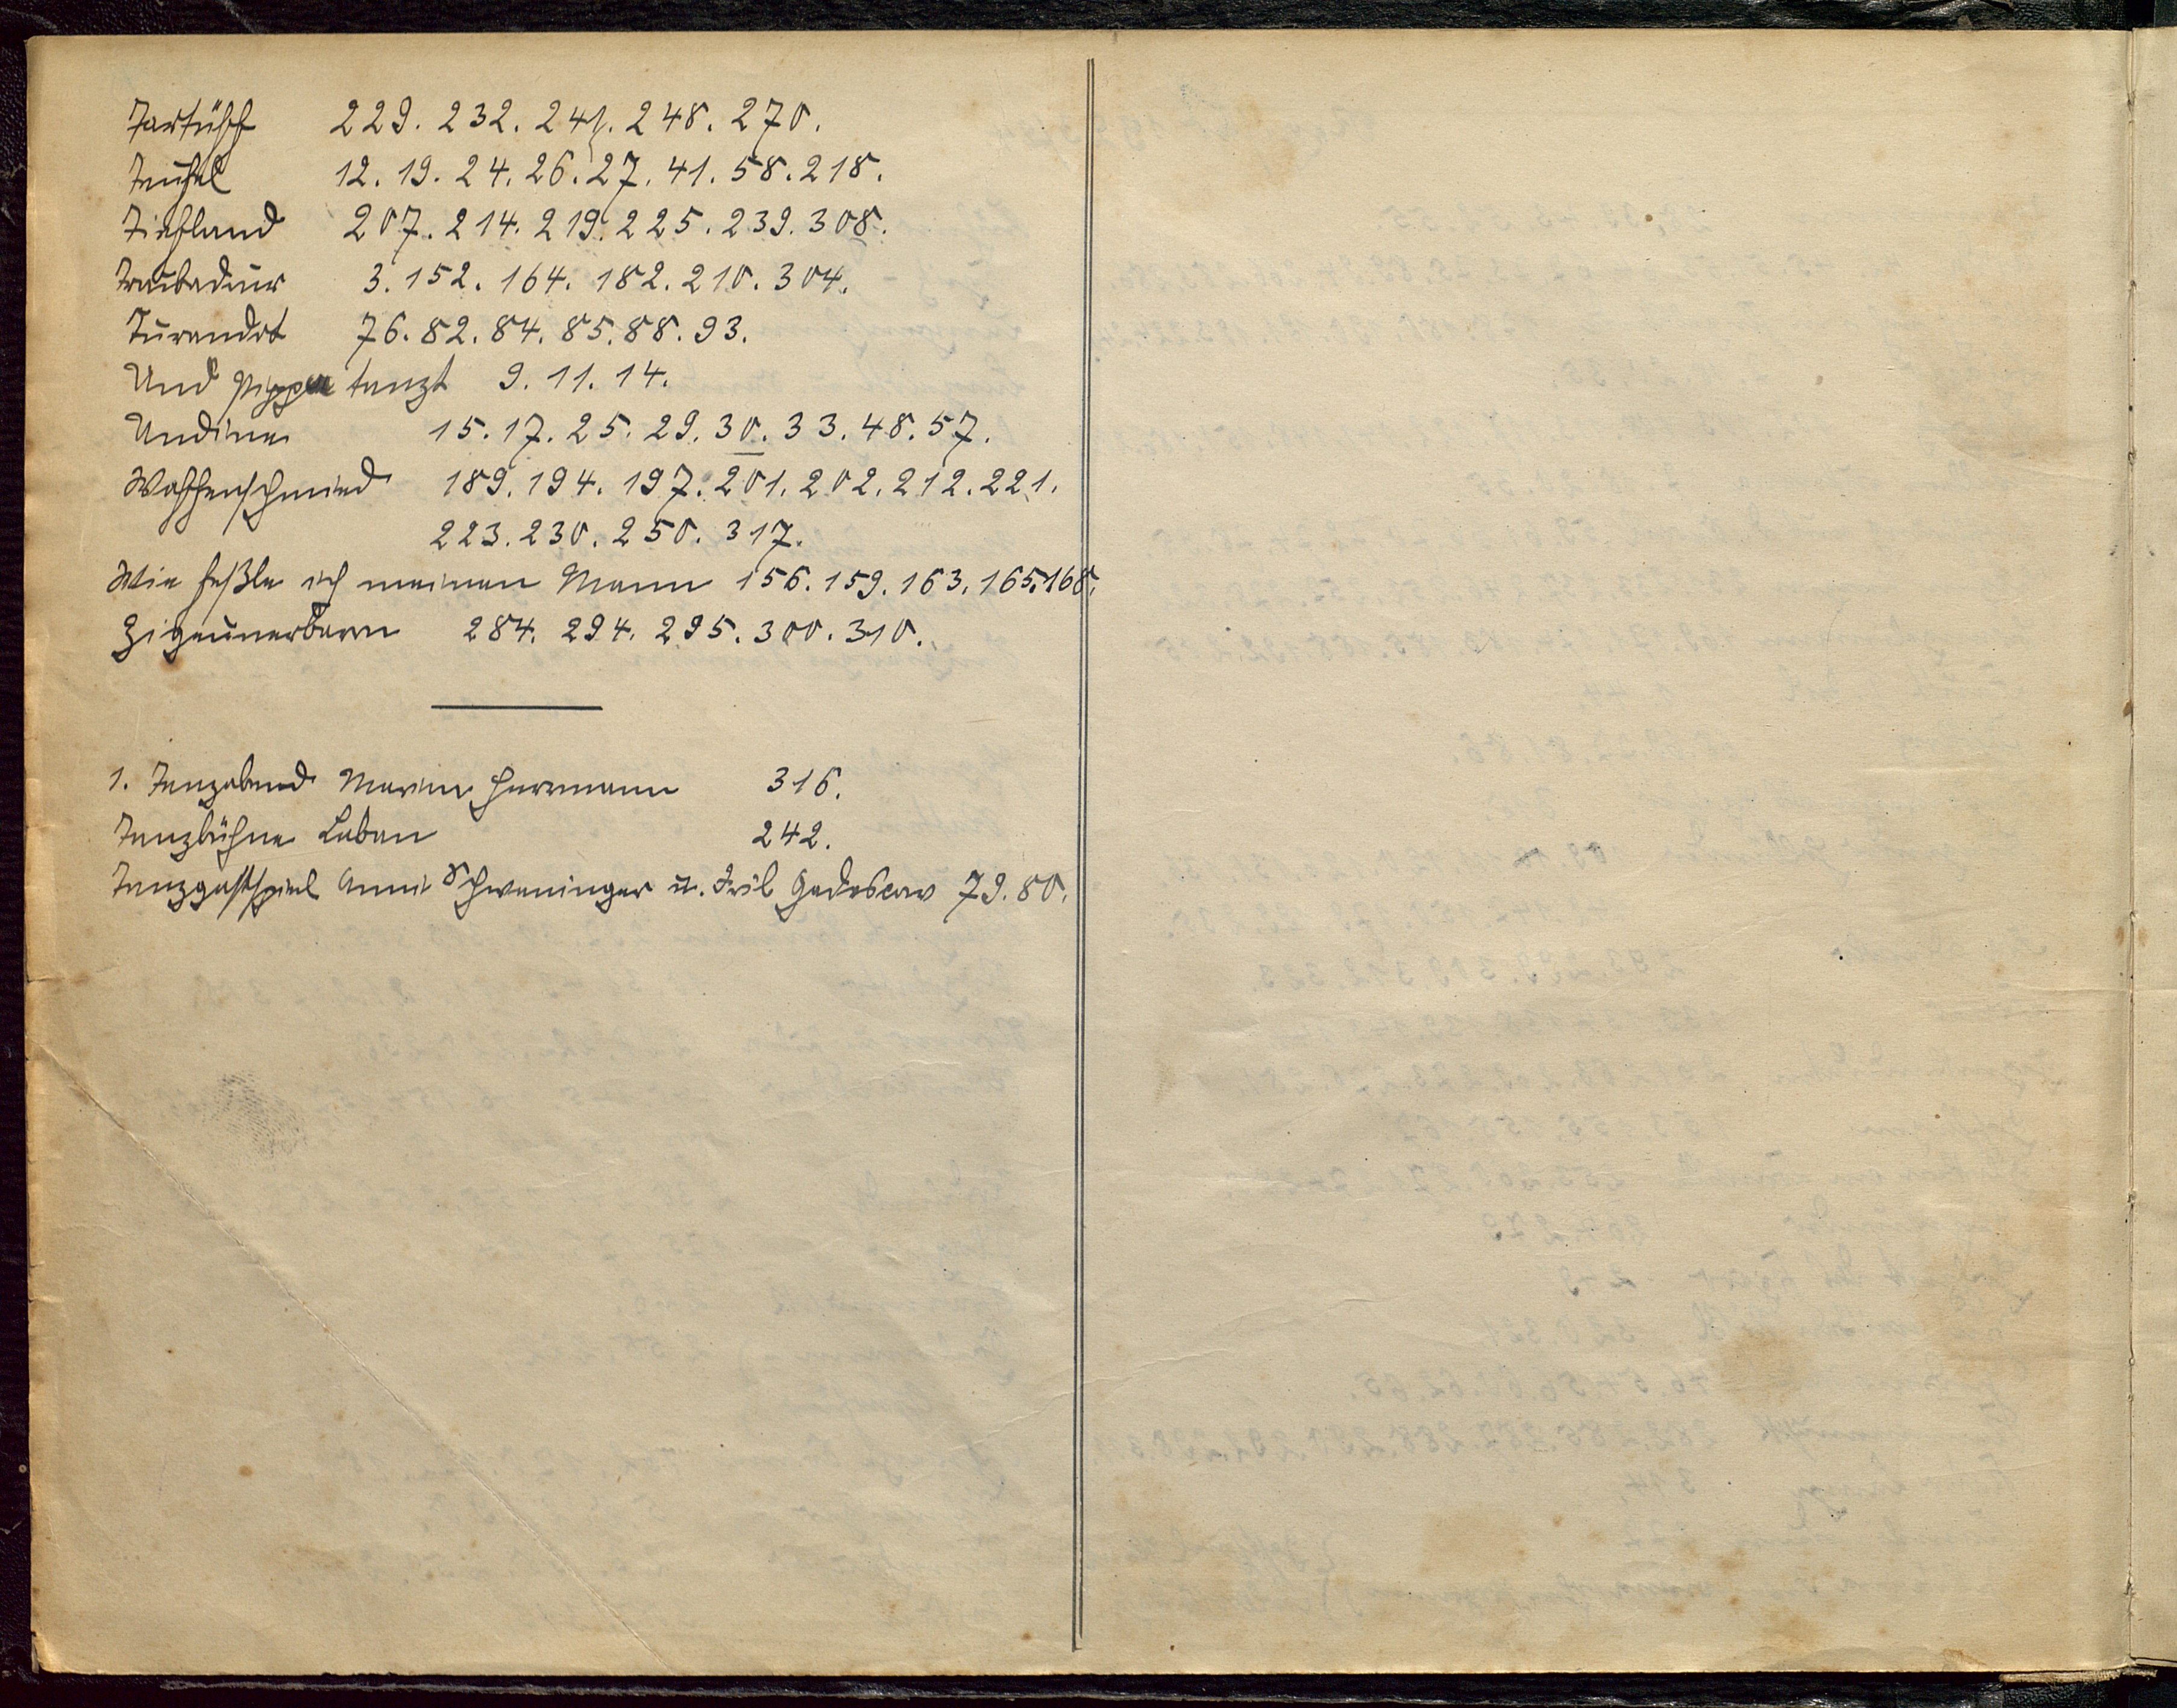 Tartüff 229. 232. 241. 248. 270.
Teufel 12. 19. 24. 26. 27. 41. 58. 218.
Tiefland 207. 214. 219. 225. 239. 308.
Troubadour 3. 152. 164. 182. 210. 304.
Turandot 76. 82. 84. 85. 88. 93.
Und Pippa tanzt 9. 11. 14.
Undine 15. 17. 25. 29. 30. 33. 48. 57.
Waffenschmied 189. 194. 197. 201. 202. 212. 221.
223. 230. 250. 317.
Wie feßle ich meinen Mann 156. 159. 163. 165. 168.
Zigeunerbaron 284. 294. 295. 300. 310.
1. Tanzabend Marion Herrmann 316.
Tanzbühne Laban 242.
Tanzgastspiel Annie Schweninger u. Iril Gadescow 79. 80.